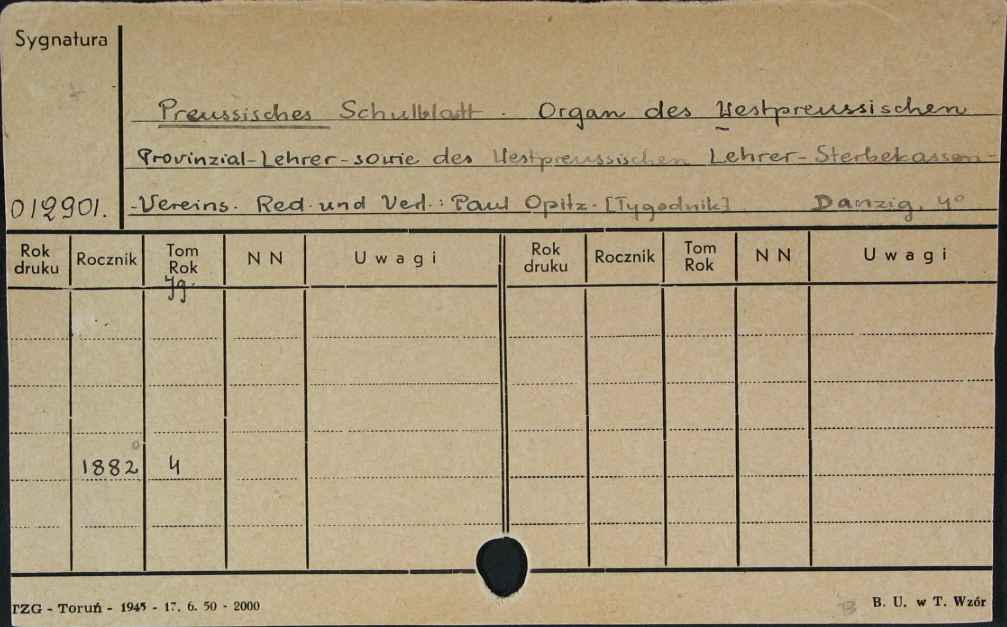 Sygnatura
Preussisches Schulblatt. Organ des Westpreussischen
Provinzial-Lehrer-sowie des Westpreussischen Lehrer-Sterbekassen-
012901. -Vereins. Red. und Verl.: Paul Opitz. [Tygodnik] Danzig, 4°
Rok druku Rocznik Tom Rok N N Uwagi Rok druku Rocznik Tom Rok N N Uwagi
Jg.
1882 4
TZG - Toruń - 1945 - 17. 6. 50 - 2000 B. U. w T. Wzór